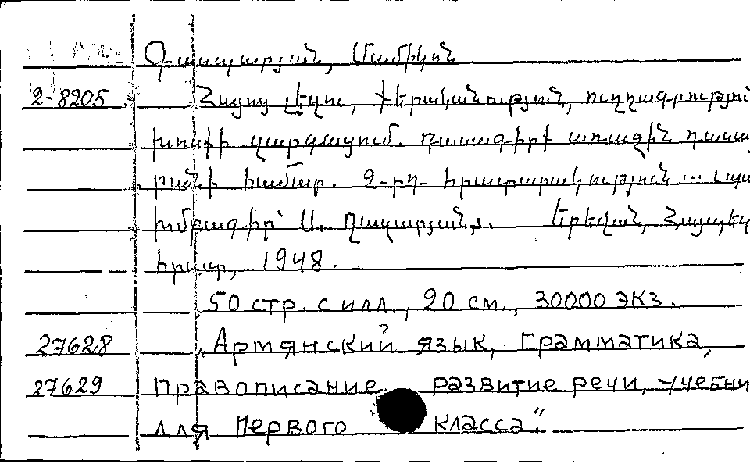 Գասպարյան, Մամիկոն
2-8205 Հայոց լեզու, քերականություն, ուղղագրություն
խոսքի զարգացում. դասագիրք առաջին դասա
րանի համար. 2-րդ հրատարակություն ...
խմբագիր՝ Ս. Ղազարյան,. Երեվան, Հայպետ
հրատ, 1948.
50 стр. с илл., 20 см., 30000 экз.
27628 „Армянский язык, грамматика,
27629 правописание развитие речи, учебни
для первого класса“.